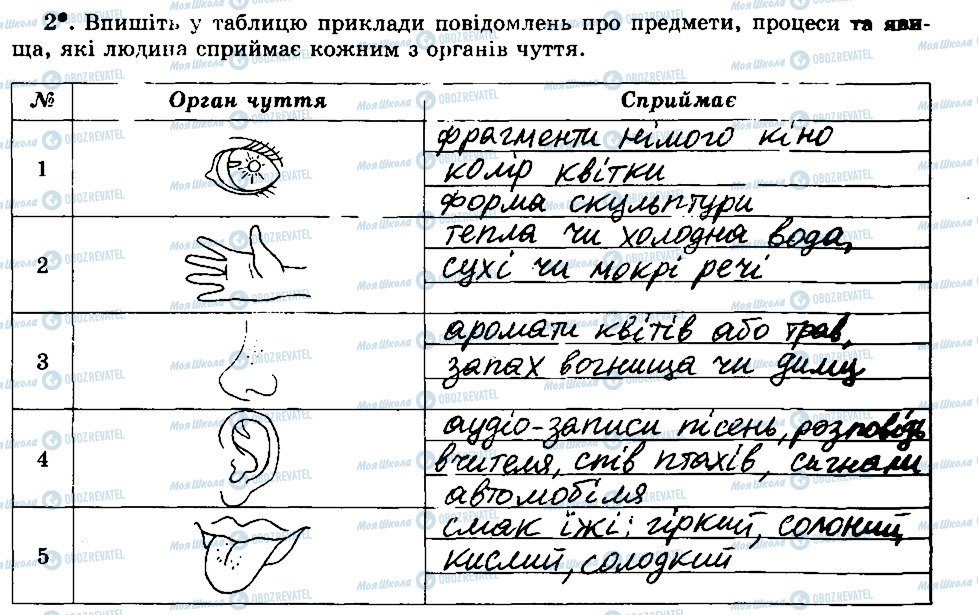 2*. Впишіть у таблицю приклади повідомлень про предмети, процеси та яви-
ща, які людина сприймає кожним з органів чуття.
№ Орган чуття Сприймає
1
фрагменти німого кіно
колір квітки
форма скульптури
2
тепла чи холодна вода,
сухі чи мокрі речі
3
аромати квітів або трав,
запах вогнища чи диму
4
аудіо-записи пісень, розповідь
вчителя, спів птахів, сигнали
автомобіля
5
смак їжі: гіркий, солоний,
кислий, солодкий
Моя Школа OBOZREVATEL